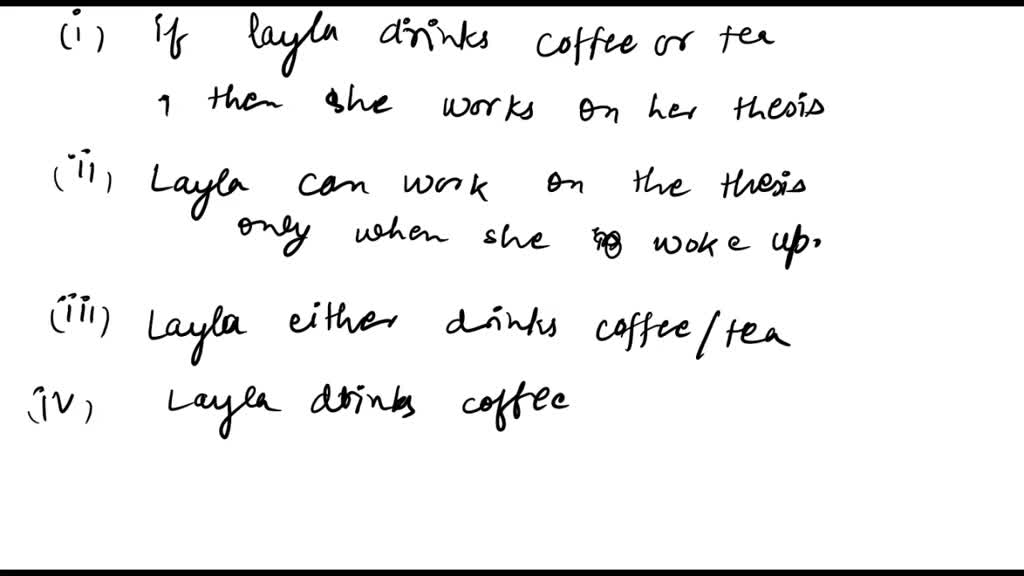 (i) If Layla drinks coffee or tea
, then she works on her thesis
(ii) Layla can work on the thesis
only when she woke up.
(iii) Layla either drinks coffee/tea
(iv) Layla drinks coffee